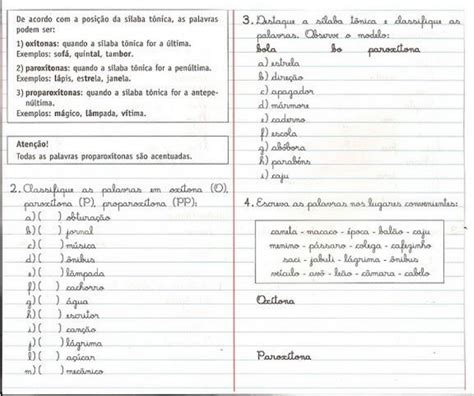 De acordo com a posição da sílaba tônica, as palavras
podem ser:
1) oxítonas: quando a sílaba tônica for a última.
Exemplos: sofá, quintal, tambor.
2) paroxítonas: quando a sílaba tônica for a penúltima.
Exemplos: tápis, estrela, janela.
3) proparoxítonas: quando a sílaba tônica for a antepe-
núltima.
Exemplos: mágico, lâmpada, vítima.
Atenção!
Todas as palavras proparoxítonas são acentuadas.
2. Classifique as palavras em oxítona (O),
paroxítona (P), proparoxítona (PP):
a) ( ) obturação
b) ( ) jornal
c) ( ) música
d) ( ) ônibus
e) ( ) lâmpada
f) ( ) cachorro
g) ( ) água
h) ( ) escritor
i) ( ) canção
j) ( ) lágrima
l) ( ) açúcar
m) ( ) mecânico
3. Destaque a sílaba tônica e classifique as
palavras. Observe o modelo:
bola bo paroxítona
a) estrela
b) direção
c) apagador
d) mármore
e) caderno
f) escola
g) abóbora
h) parabéns
i) caju
4. Escreva as palavras nos lugares convenientes:
caneta - macaco - época - balão - caju
menino - pássaro - colega - cafezinho
saci - jabuti - lágrima - ônibus
veículo - avô - leão - câmara - cabelo
Oxítona
Paroxítona